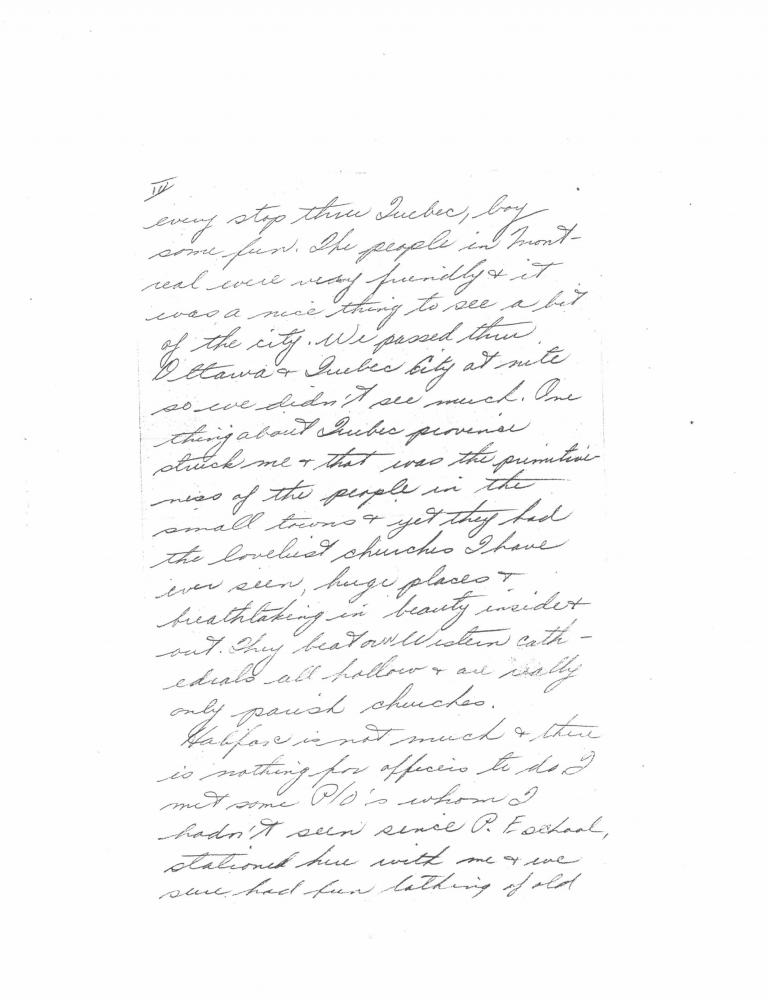 IV
every stop thru Quebec, boy
some fun. The people in Mont-
real were very friendly & it
was a nice thing to see a bit
of the city. We passed thru
Ottawa & Quebec City at nite
so we didn't see much. One
thing about Quebec province
struck me & that was the primitive-
ness of the people in the
small towns & yet they had
the loveliest churches I have
ever seen, huge places &
breathtaking in beauty inside &
out. They beat our Western cath-
edrals all hollow & are really
only parish churches.
Halifax is not much & there
is nothing for officers to do I
met some P/O's whom I
hadn't seen since P. F. school,
stationed here with me & we
sure had fun of old